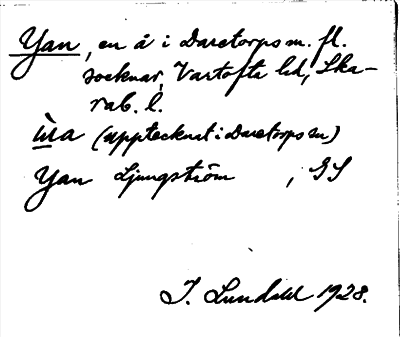 Yan, en å i Daretorps m. fl.
socknar, Vartofta hd, Ska-
rab. l.
(upptecknat i Daretorps sn)
Yan Ljungström , GS
I. Lundahl 1928.